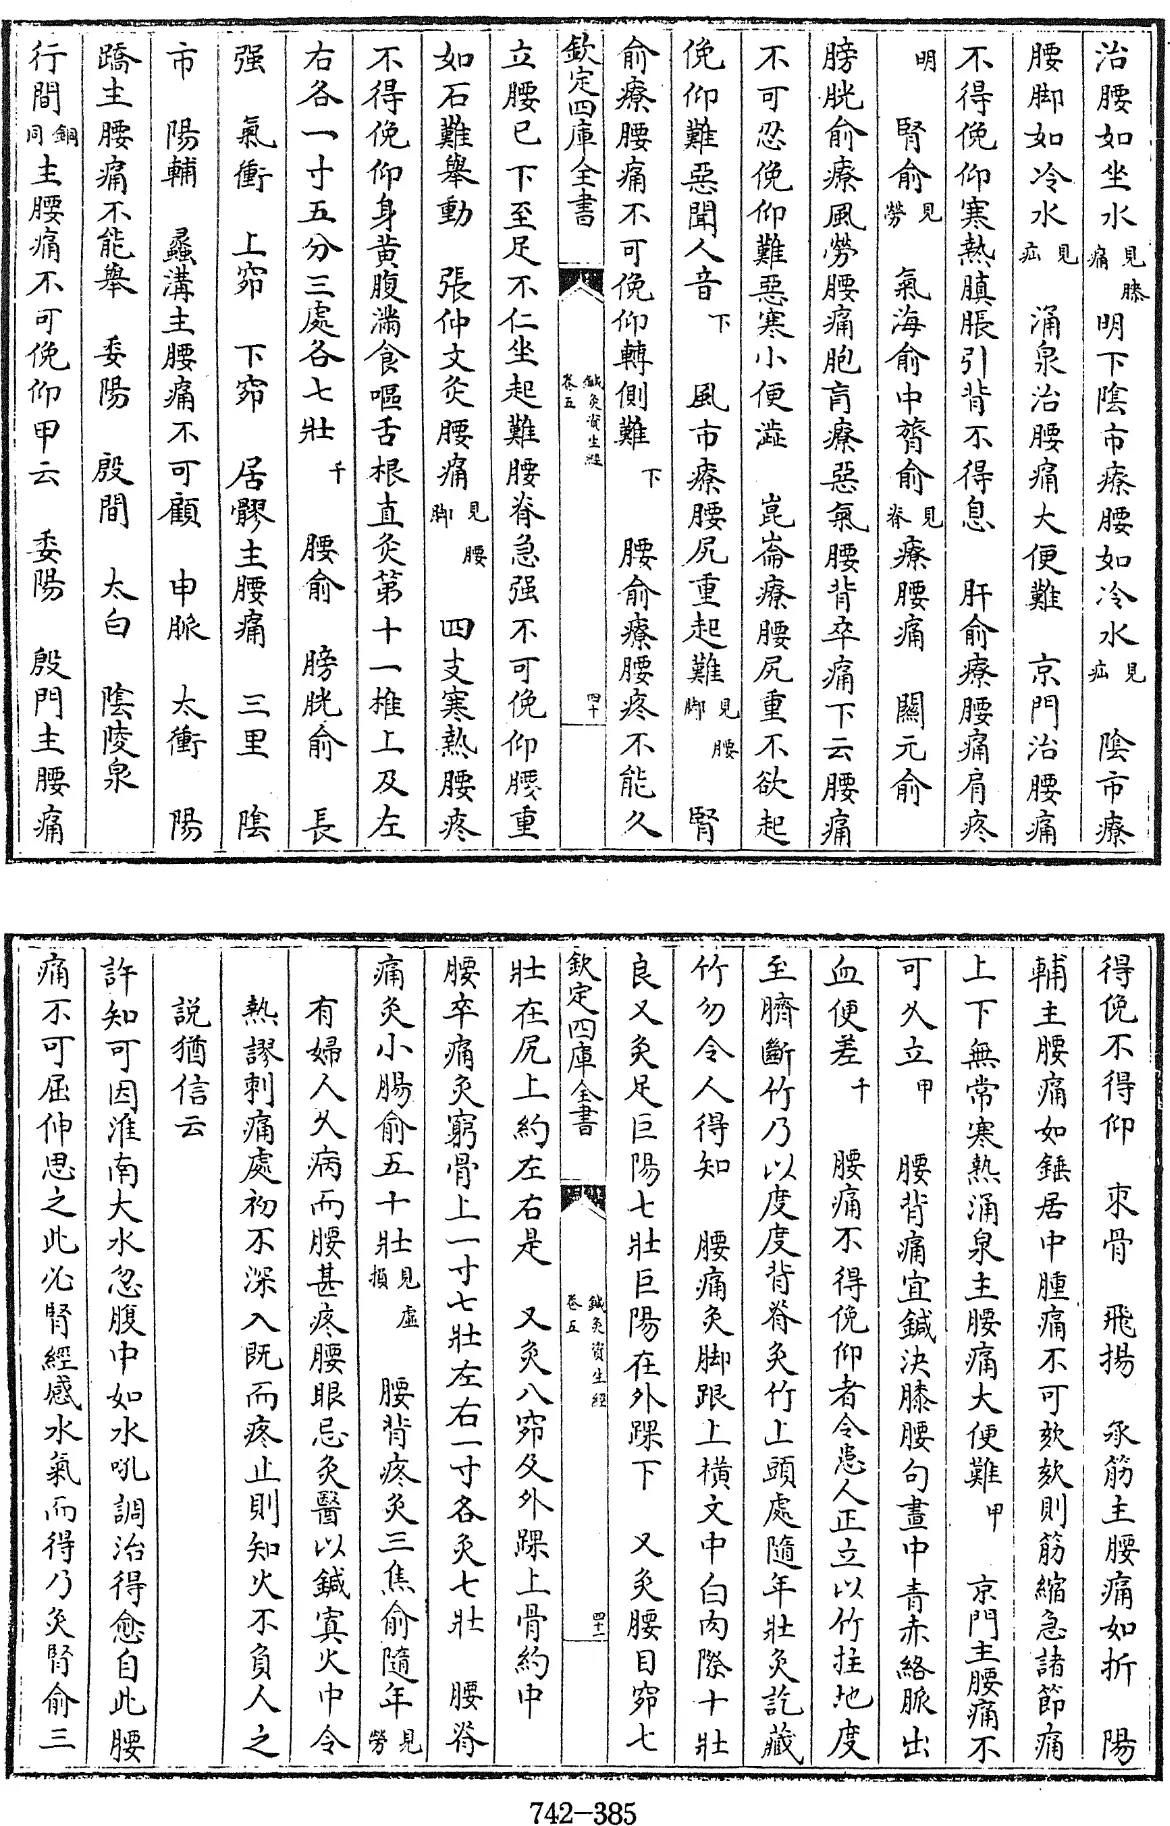 治腰如坐水見膝痛明下陰市療腰如冷水見疝 陰市療
腰脚如冷水見疝 涌泉治腰痛大便難 京門治腰痛
不得俛仰寒熱䐜脹引背不得息 肝俞療腰痛肩疼
明 腎俞見勞 氣海俞中膂俞見脊療腰痛 關元俞
膀胱俞療風勞腰痛胞肓療惡氣腰背卒痛下云腰痛
不可忍俛仰難惡寒小便澁 崑崙療腰尻重不欲起
俛仰難惡聞人音下 風市療腰尻重起難見腰脚 腎
俞療腰痛不可俛仰轉側難下 腰俞療腰疼不能久
欽定四庫全書 鍼灸資生經卷五 四十
立腰已下至足不仁坐起難腰脊急强不可俛仰腰重
如石難舉動 張仲文灸腰痛見腰脚 四支寒熱腰疼
不得俛仰身黃腹滿食嘔舌根直灸第十一椎上及左
右各一寸五分三處各七壯千 腰俞 膀胱俞 長
强 氣衝 上窌 下窌 居髎主腰痛 三里 陰
市 陽輔 蠡溝主腰痛不可顧 申脈 太衝 陽
蹻主腰痛不能舉 委陽 殷間 太白 陰陵泉
行間銅同主腰痛不可俛仰甲云 委陽 殷門主腰痛
得俛不得仰 束骨 飛揚 承筋主腰痛如折 陽
輔主腰痛如錘居中腫痛不可欬欬則筋縮急諸節痛
上下無常寒熱涌泉主腰痛大便難甲 京門主腰痛不
可久立甲 腰背痛宜鍼決膝腰句畫中青赤絡脈出
血便差千 腰痛不得俛仰者令患人正立以竹拄地度
至臍斷竹乃以度度背脊灸竹上頭處隨年壯灸訖藏
竹勿令人得知 腰痛灸脚跟上橫文中白肉際十壯
良又灸足巨陽七壯巨陽在外踝下 又灸腰目窌七
欽定四庫全書 鍼灸資生經卷五 四十一
壯在尻上約左右是 又灸八窌及外踝上骨約中
腰卒痛灸窮骨上一寸七壯左右一寸各灸七壯 腰脊
痛灸小腸俞五十壯見虛損 腰背疼灸三焦俞隨年見勞
有婦人久病而腰甚疼腰眼忌灸醫以鍼寘火中令
熱謬刺痛處初不深入既而疼止則知火不負人之
説猶信云
許知可因淮南大水忽腹中如水吼調治得愈自此腰
痛不可屈伸思之此必腎經感水氣而得乃灸腎俞三
742-385